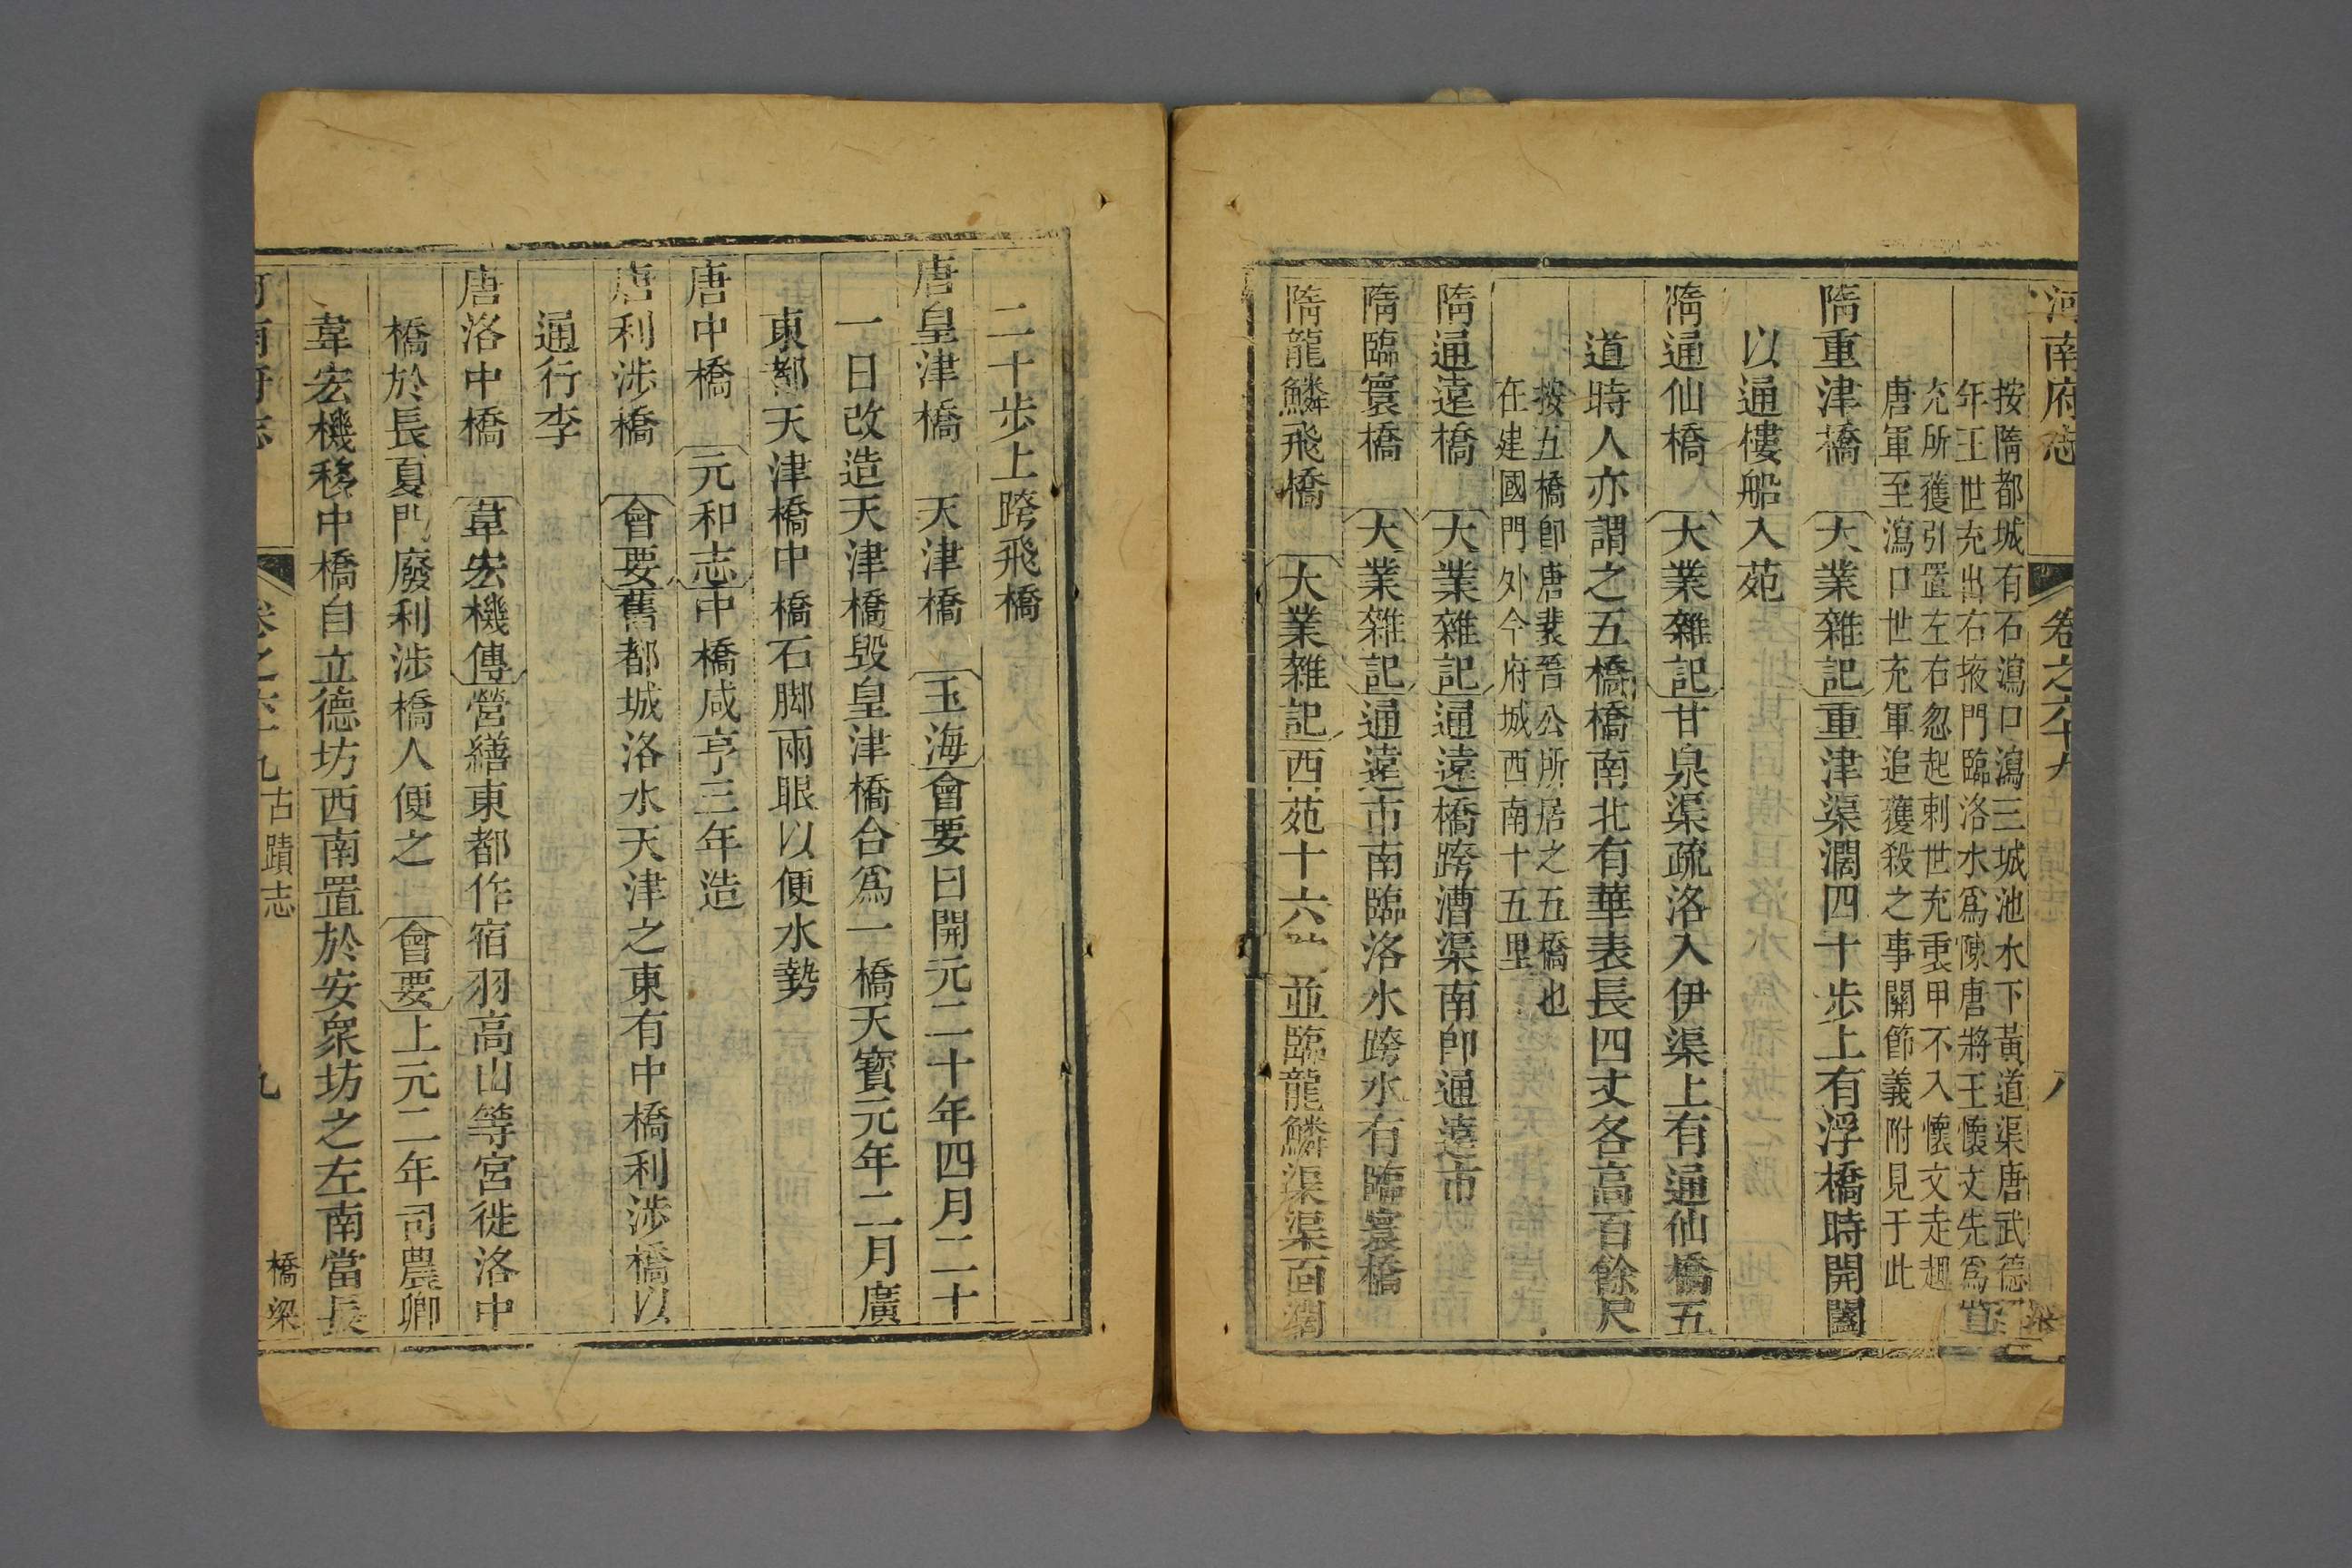 河南府志 卷之六十九 八
按隋都城有石瀉口瀉三城池水下黃道渠唐武德
年王世充出右掖門臨洛水爲陳唐將王懷文先爲
充所獲引置左右忽起刺世充衷甲不入懷文走趣
唐軍至瀉口世充軍追獲殺之事關節義附見于此
隋重津橋 大業雜記重津渠濶四十步上有浮橋時開闔
以通樓船入苑
隋通仙橋 大業雜記甘泉渠疏洛入伊渠上有通仙橋五
道時人亦謂之五橋橋南北有華表長四丈各高百餘尺
按五橋卽唐裴晉公所居之五橋也
在建國門外今府城西南十五里
隋通遠橋 大業雜記通遠橋跨漕渠南卽通遠市
隋臨寰橋 大業雜記通遠市南臨洛水跨水有臨寰橋
隋龍鱗飛橋 大業雜記西苑十六 並臨龍鱗渠渠面濶
二十步上跨飛橋
唐皇津橋 天津橋 玉海會要曰開元二十年四月二十
一日改造天津橋毀皇津橋合爲一橋天寶元年二月廣
東都天津橋中橋石脚兩眼以便水勢
唐中橋 元和志中橋咸亨三年造
唐利涉橋 會要舊都城洛水天津之東有中橋利涉橋以
通行李
唐洛中橋 韋宏機傳營繕東都作宿羽高山等宮徙洛中
橋於長夏門廢利涉橋人便之 會要上元二年司農卿
韋宏機移中橋自立德坊西南置於安衆坊之左南當長
河南府志 卷之六十九 古蹟志 九 橋梁